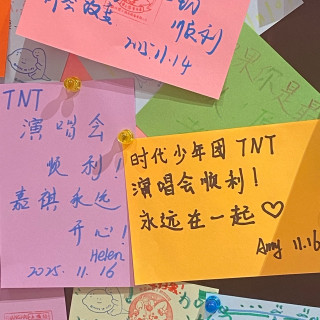 顺利
2025.11.14
TNT
演唱会
顺利!
嘉祺永远
开心!
Helen
2025.11.16
时代少年团 TNT
演唱会顺利!
永远在一起♡
Amy 11.16